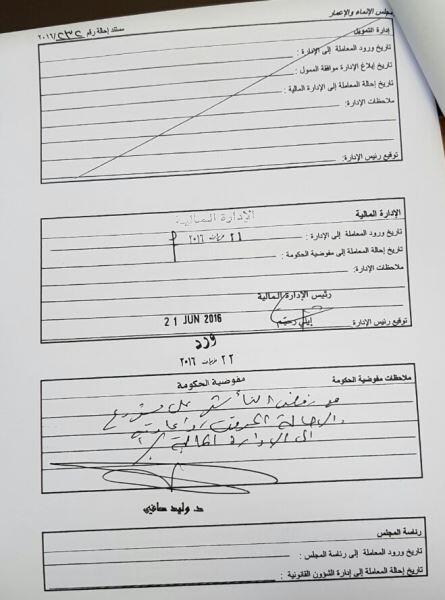 مجلس الإنماء والإعمار
مستند إحالة رقم ٢٣٢/٢٠١٦
إدارة التمويل
تاريخ ورود المعاملة إلى الإدارة :
تاريخ إبلاغ الإدارة موافقة الممول :
تاريخ إحالة المعاملة إلى الإدارة المالية :
ملاحظات الإدارة:
توقيع رئيس الإدارة:
الإدارة المالية
الإدارة المالية
تاريخ ورود المعاملة إلى الإدارة : ٢١ حزيران ٢٠١٦
تاريخ إحالة المعاملة إلى مفوضية الحكومة :
ملاحظات الإدارة:
رئيس الإدارة المالية
توقيع رئيس الإدارة
21 JUN 2016
ورد
٢٢ حزيران ٢٠١٦
مفوضية الحكومة
ملاحظات مفوضية الحكومة
مع رفض التأشير على مشروع
الإحالة المرفق وإعادته
الى الإدارة المالية
د. وليد صافي
رئاسة المجلس
تاريخ ورود المعاملة إلى رئاسة المجلس :
تاريخ إحالة المعاملة إلى إدارة الشؤون القانونية :